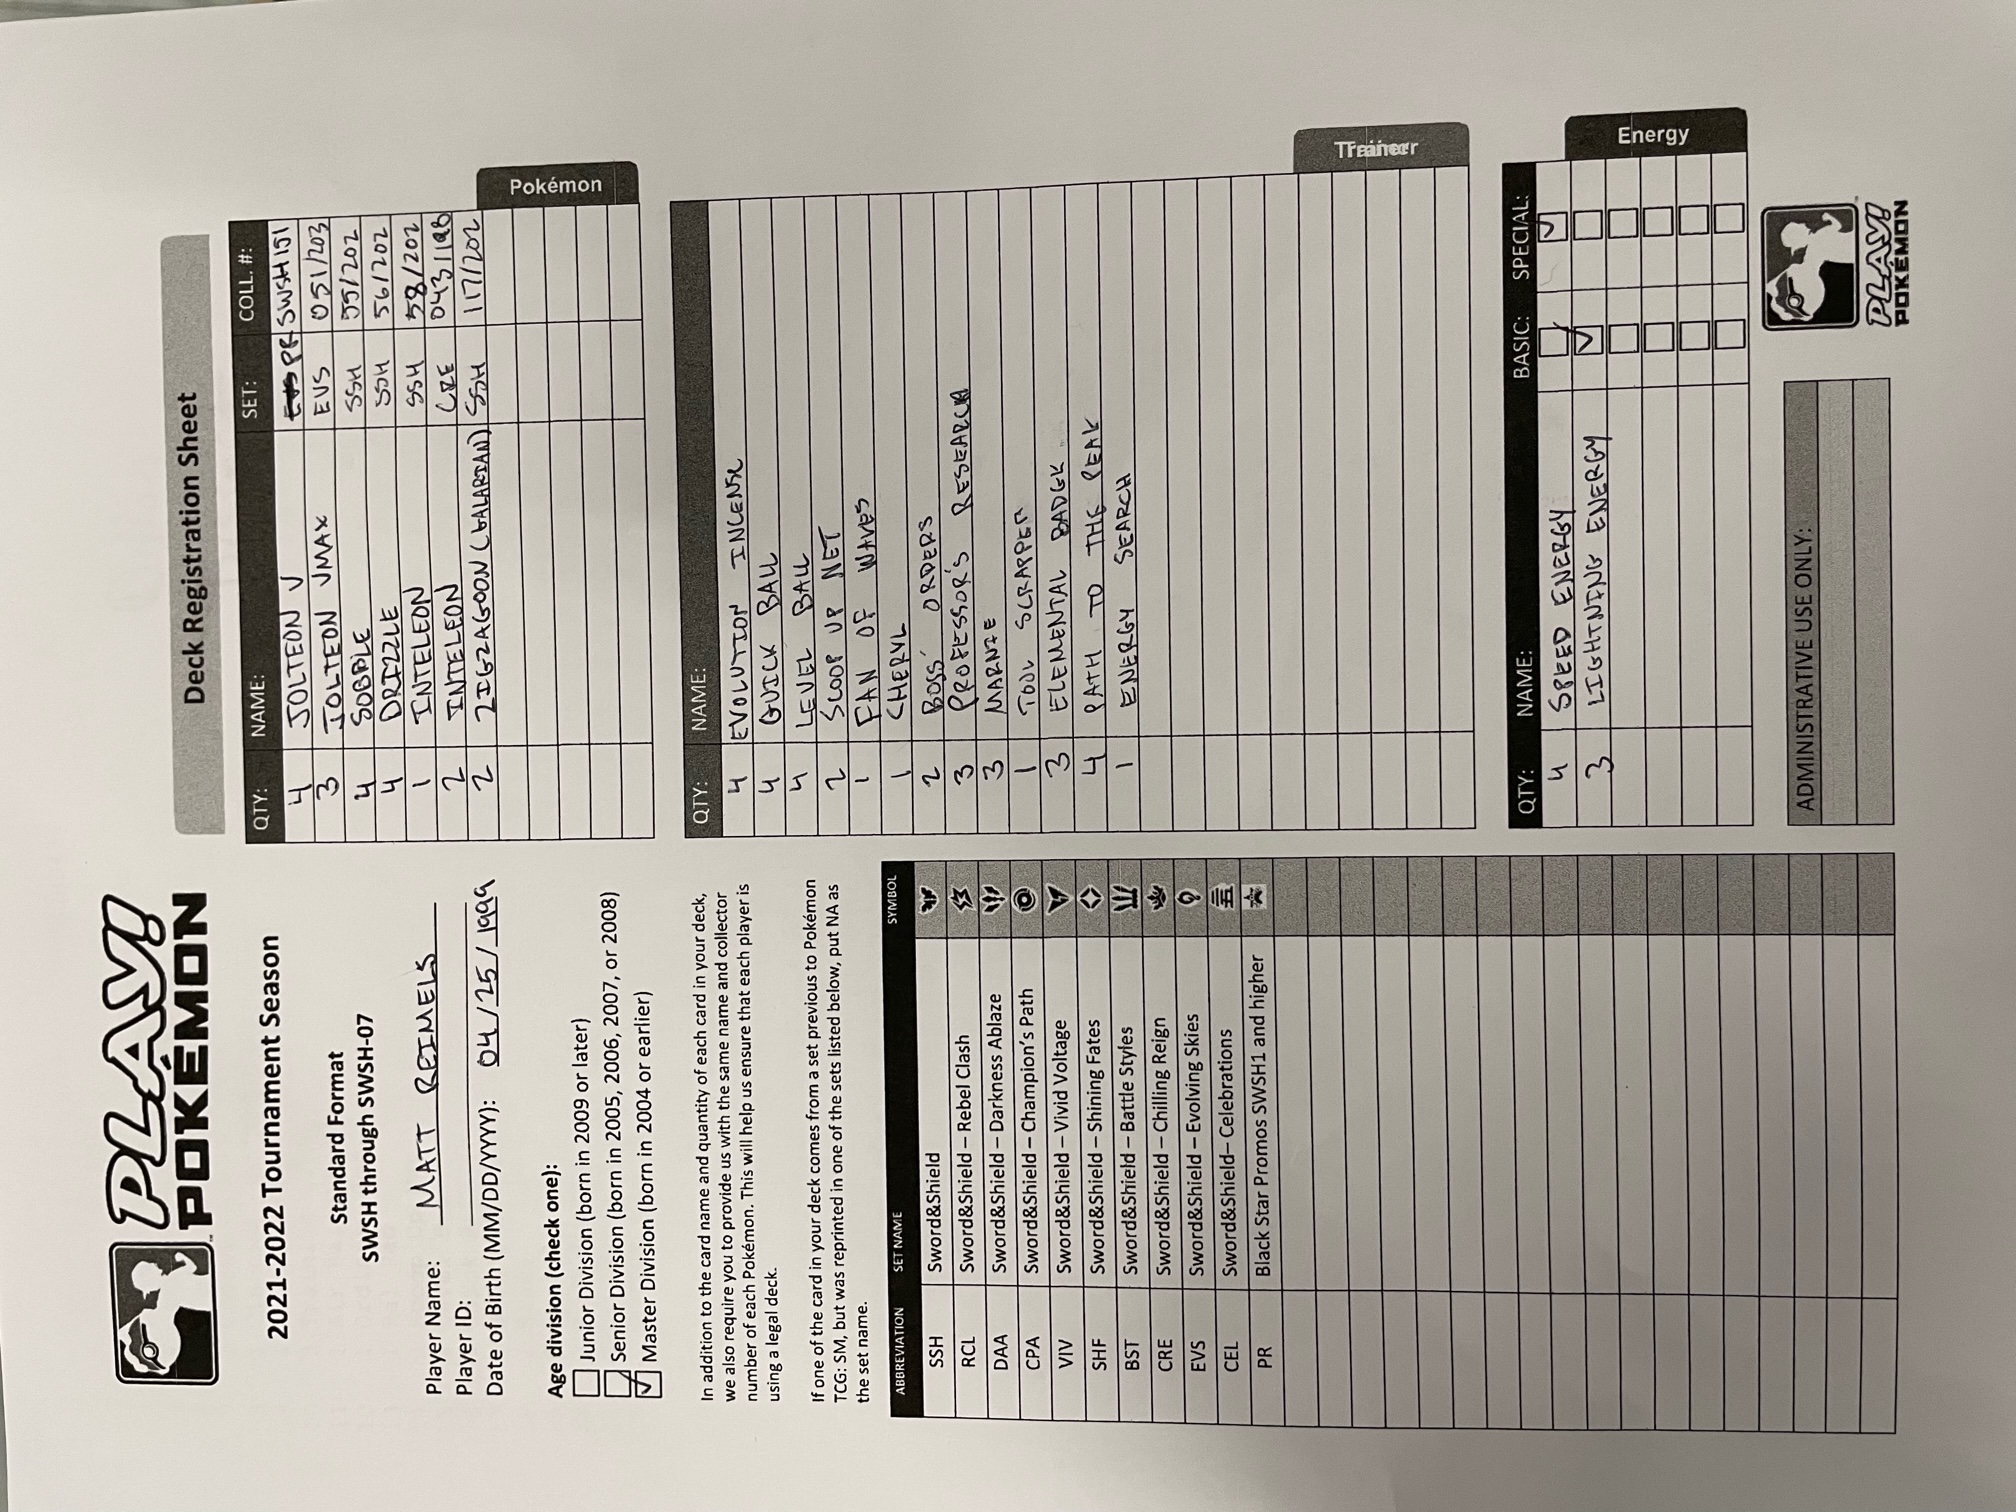 PLAY!
POKÉMON
2021-2022 Tournament Season
Standard Format
SWSH through SWSH-07
Player Name: MATT REIMELS
Player ID:
Date of Birth (MM/DD/YYYY): 04/25/1999
Age division (check one):
Junior Division (born in 2009 or later)
Senior Division (born in 2005, 2006, 2007, or 2008)
Master Division (born in 2004 or earlier)
In addition to the card name and quantity of each card in your deck,
we also require you to provide us with the same name and collector
number of each Pokémon. This will help us ensure that each player is
using a legal deck.
If one of the card in your deck comes from a set previous to Pokémon
TCG: SM, but was reprinted in one of the sets listed below, put NA as
the set name.
ABBREVIATION SET NAME SYMBOL
SSH Sword&Shield
RCL Sword&Shield – Rebel Clash
DAA Sword&Shield – Darkness Ablaze
CPA Sword&Shield – Champion's Path
VIV Sword&Shield – Vivid Voltage
SHF Sword&Shield – Shining Fates
BST Sword&Shield – Battle Styles
CRE Sword&Shield – Chilling Reign
EVS Sword&Shield – Evolving Skies
CEL Sword&Shield– Celebrations
PR Black Star Promos SWSH1 and higher
Deck Registration Sheet
QTY: NAME: SET: COLL. #:
4 JOLTEON V EVS PR SWSH151
3 JOLTEON VMAX EVS 051/203
4 SOBBLE SSH 55/202
4 DRIZZLE SSH 56/202
1 INTELEON SSH 58/202
2 INTELEON CRE 043/198
2 ZIGZAGOON (GALARIAN) SSH 117/202
Pokémon
QTY: NAME:
4 EVOLUTION INCENSE
4 QUICK BALL
4 LEVEL BALL
2 SCOOP UP NET
1 FAN OF WAVES
1 CHERYL
2 BOSS' ORDERS
3 PROFESSOR'S RESEARCH
3 MARNIE
1 TOOL SCRAPPER
3 ELEMENTAL BADGE
4 PATH TO THE PEAK
1 ENERGY SEARCH
Trainer
QTY: NAME: BASIC: SPECIAL:
4 SPEED ENERGY
3 LIGHTNING ENERGY
Energy
ADMINISTRATIVE USE ONLY:
PLAY!
POKÉMON